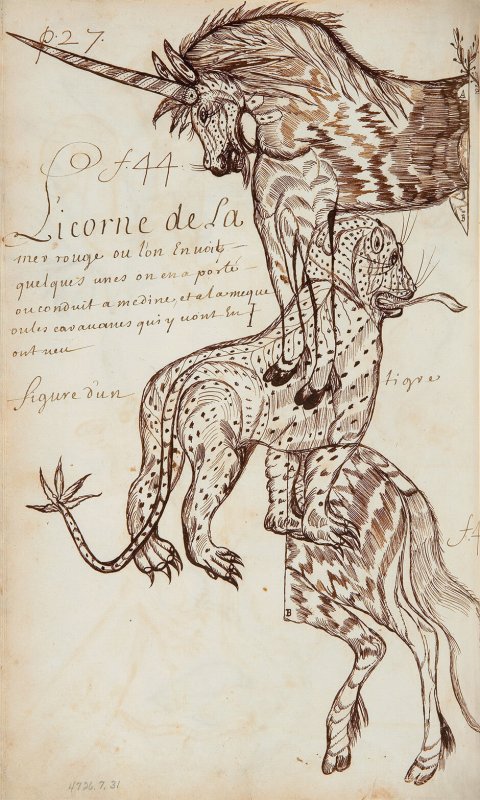 p. 27.
f 44
Licorne de La
mer rouge ou l'on En voit
quelques unes on en a porté
ou conduit a medine, et a la meque
ou les caravanes qui y vont En
ont veu
figure d'un tigre
A
B
f4
4726.7.31